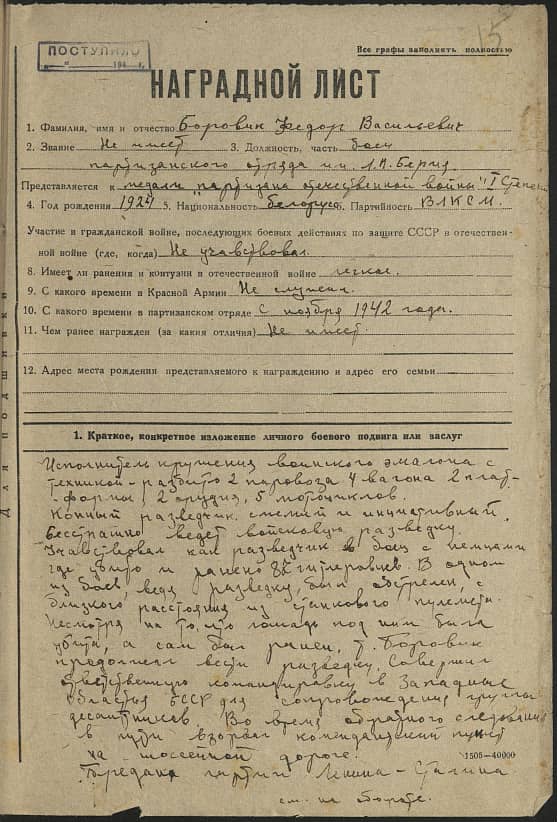 15
ПОСТУПИЛО
" " 194 г.
Все графы заполнять полностью
НАГРАДНОЙ ЛИСТ
1. Фамилия, имя и отчество Боровик Федор Васильевич
2. Звание Не имеет 3. Должность, часть боец
партизанского отряда им. Л.П. Берия
Представляется к медали "партизана отечественной войны" I Степени
4. Год рождения 1924 5. Национальность белорус 6. Партийность ВЛКСМ.
Участие в гражданской войне, последующих боевых действиях по защите СССР в отечествен-
ной войне (где, когда) Не учавствовал.
8. Имеет ли ранения и контузии в отечественной войне легкое.
9. С какого времени в Красной Армии Не служил.
10. С какого времени в партизанском отряде С ноября 1942 года.
11. Чем ранее награжден (за какия отличия) Не имеет
12. Адрес места рождения представляемого к награждению и адрес его семьи
Для подшивки
1. Краткое, конкретное изложение личного боевого подвига или заслуг
Исполнитель крушения воинского эшалона с
техникой - разбито 2 паровоза 4 вагона 2 плат-
формы, 2 орудия, 5 мотоциклов.
Конный разведчик. смелый и инициативный.
Бесстрашно ведет войсковую разведку.
Учавствовал как разведчик в боях с немцами
где убито и ранено гитлеровцев. В одном
из боев, ведя разведку, был обстрелен, с
близкого расстояния из станкового пулемета.
Несмотря на то, что лошадь под ним была
убита, а сам был ранен, т. Боровик
продолжал вести разведку. Совершил
ответственную командировку в Западные
области БССР для сопровождения группы
десантников. Во время обратного следования
в пути взорвал комендантский пункт
на шоссейной дороге.
1505-40000
Предан партии Ленина-Сталина
см. на обороте.